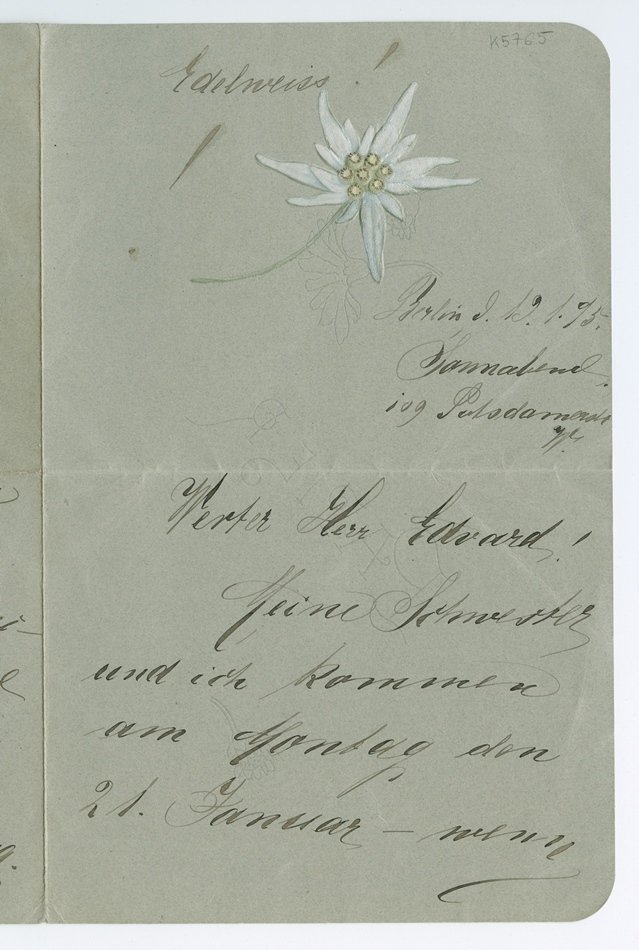 K5765
Edelweiss!
Berlin d. 19. 1. 95.
Sonnabend.
109 Potsdamerstr
W.
Werter Herr Edvard!
Meine Schwester
und ich kommen
am Montag den
21. Januar – wenn